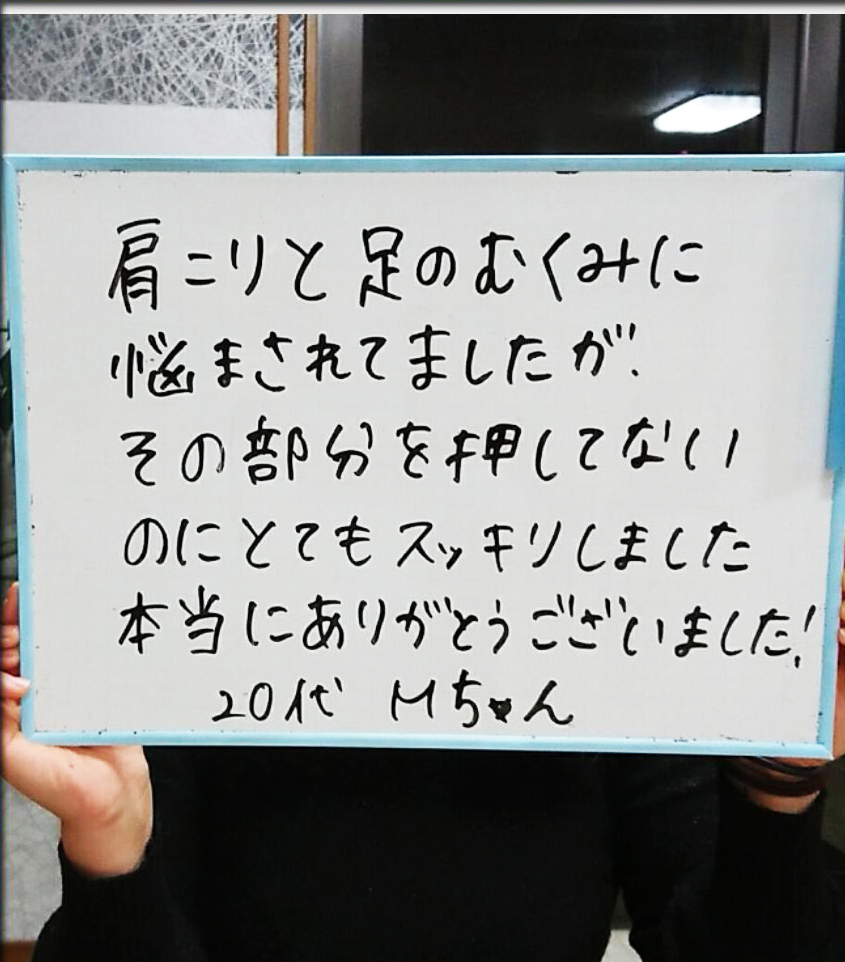 肩こりと足のむくみに
悩まされてましたが、
その部分を押してない
のにとてもスッキリしました
本当にありがとうございました!
20代 Mちゃん